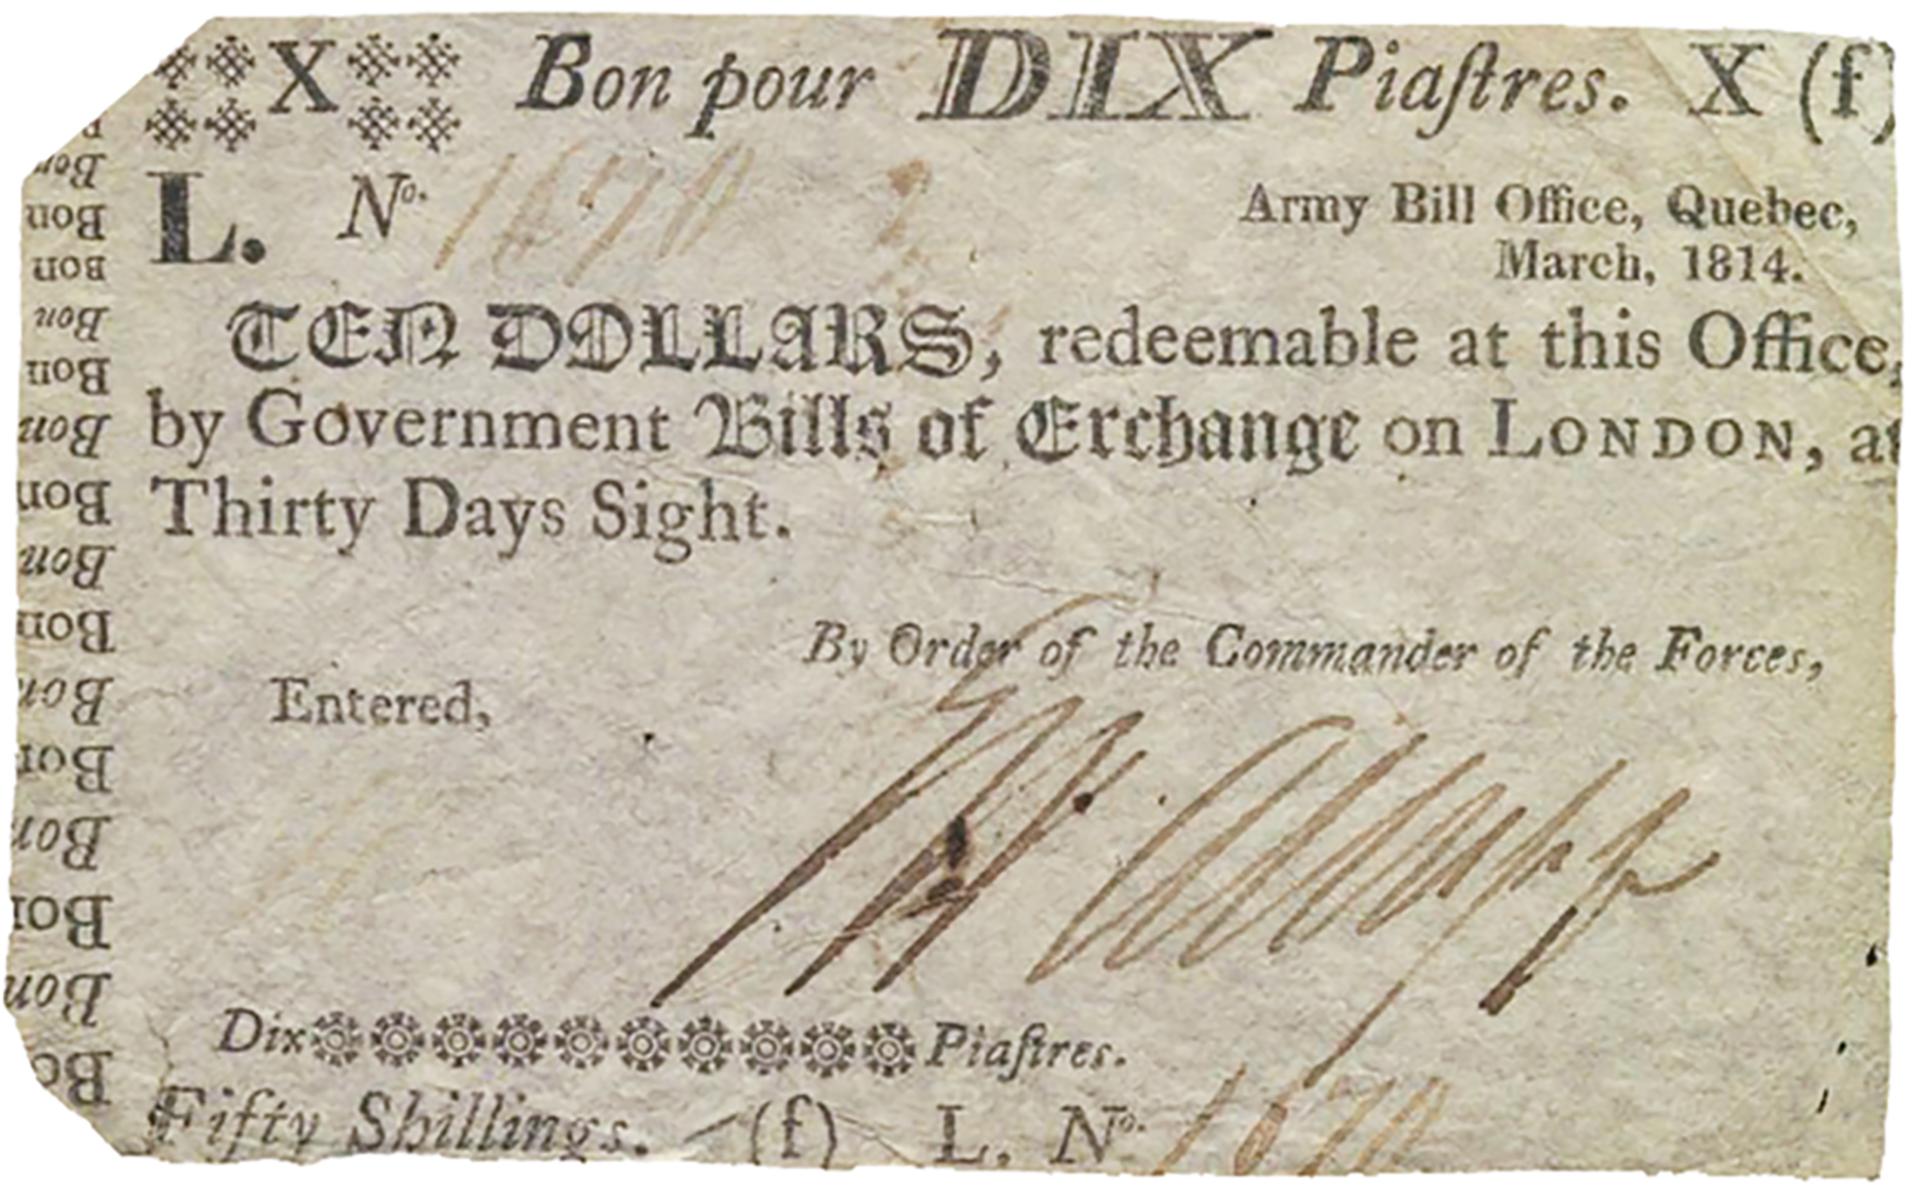 X Bon pour DIX Piaſtres. X (f)
L. No. 1670
Army Bill Office, Quebec,
March, 1814.
TEN DOLLARS, redeemable at this Office,
by Government Bills of Exchange on LONDON, at
Thirty Days Sight.
By Order of the Commander of the Forces,
Entered,
Dix Piaſtres.
Fifty Shillings. (f) L. No. 1670
Bon
Bon
Bon
Bon
Bon
Bon
Bon
Bon
Bon
Bon
Bon
Bon
Bon
Bon
Bo